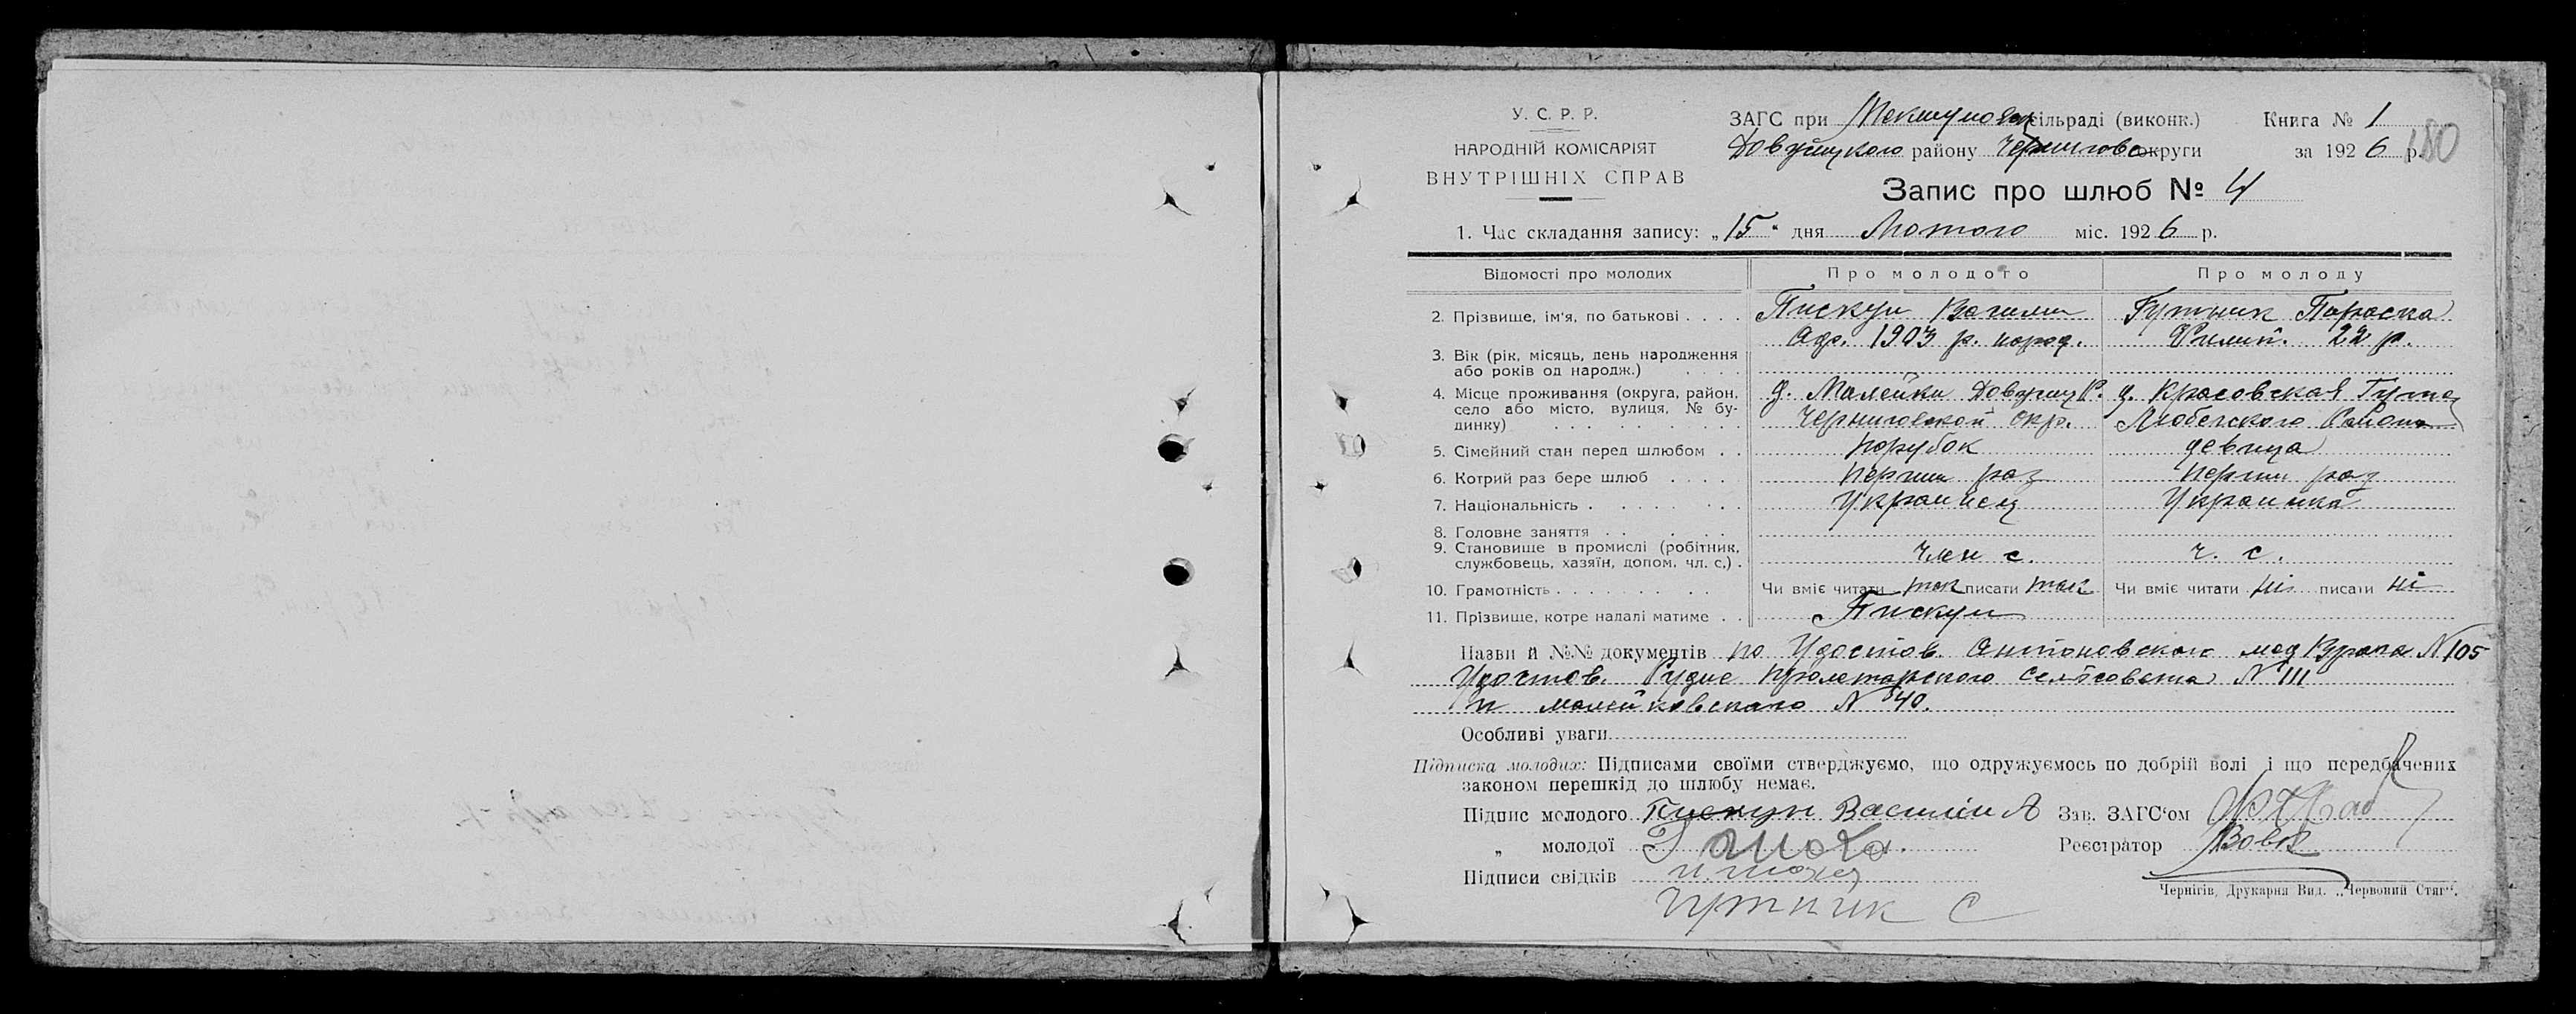 У. С. Р. Р.
НАРОДНІЙ КОМІСАРІЯТ
ВНУТРІШНІХ СПРАВ
ЗАГС при сільраді (виконк.) Книга № 1
району округи за 1926 р. 180
Запис про шлюб № 4
1. Час складання запису: „15“ дня Лютого міс. 1926 р.
Відомості про молодих Про молодого Про молоду
2. Прізвище, ім'я, по батькові . . . . Пискун Василий Гутник Параска
Адр. 1903 р. пород. Филип. 22 р.
3. Вік (рік, місяць, день народження
або років од народж.) . . . .
4. Місце проживання (округа, район, д. Малейки д. Красовская Гута
село або місто, вулиця, № бу-
динку) . . . . . . . . . Черниговской окр. Любечского Района
5. Сімейний стан перед шлюбом . . парубок девица
6. Котрий раз бере шлюб . . . . перши раз перши раз
7. Національність . . . . . . . . Украинец Украинка
8. Головне заняття . . . . . .
9. Становище в промислі (робітник,
службовець, хазяїн, допом. чл. с.) . член с. ч. с.
10. Грамотність . . . . . . . . . Чи вміє читати так писати так Чи вміє читати ні писати ні
11. Прізвище, котре надалі матиме . . Пискун
Назви й №№ документів по Удостов. Антоновского мед N 105
Удостов. Рудне Пролетарского сельсовета N 111
и малейковского N 40.
Особливі уваги
Підписка молодих: Підписами своїми стверджуємо, що одружуємось по добрій волі і що передбачених
законом перешкід до шлюбу немає.
Підпис молодого Пискун Василий А Зав. ЗАГС‘ом
„ молодої Реєстратор Вовк
Підписи свідків
Гутник С
Чернігів, Друкарня Вид. „Червоний Стяг“.